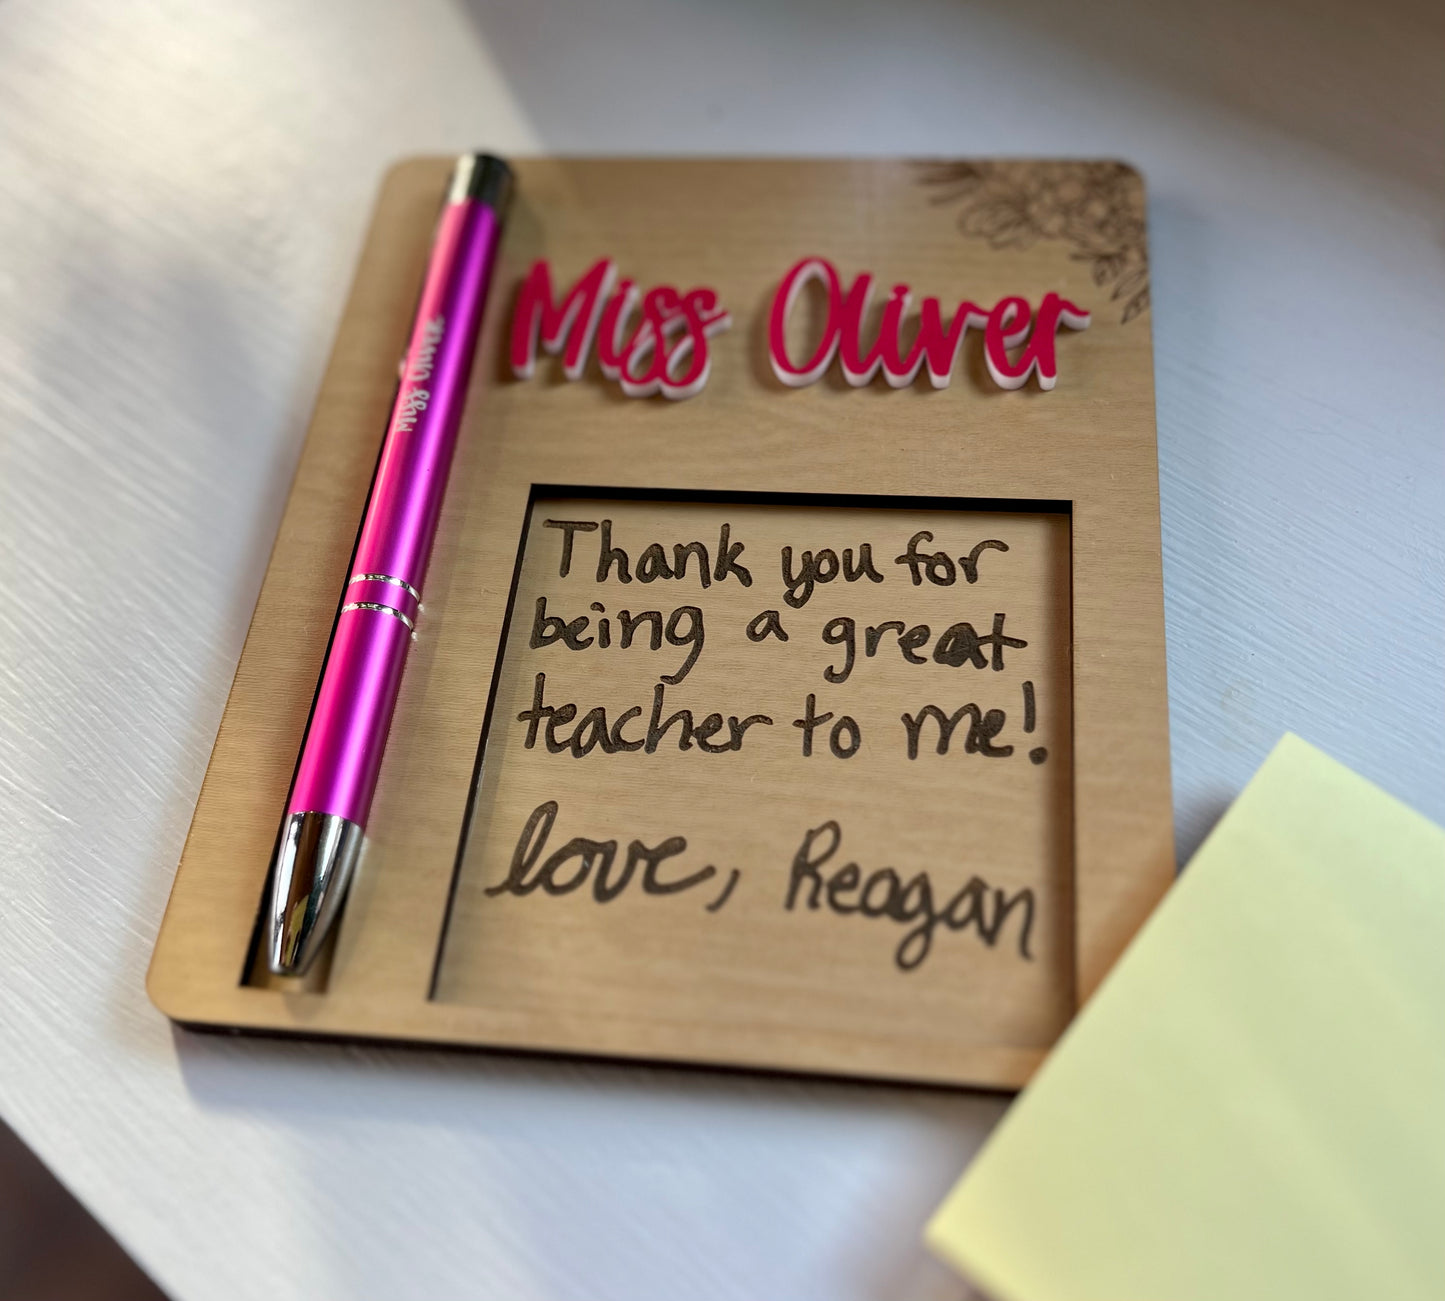 Miss Oliver
Miss Oliver
Thank you for
being a great
teacher to me!
love, Reagan